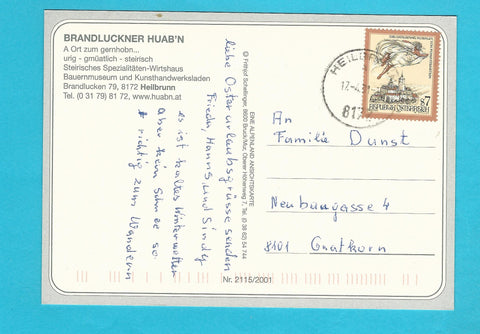 BRANDLUCKNER HUAB'N
A Ort zum gernhobn...
urig - gmüatlich - steirisch
Steirisches Spezialitäten-Wirtshaus
Bauernmuseum und Kunsthandwerksladen
Brandlucken 79, 8172 Heilbrunn
Tel. (0 31 79) 81 72, www.huabn.at
liebe Osterurlaubsgrüsse senden
Friedr, Hanns und Sindy
es ist kaltes Winterwetter
aber kein Schnee so
richtig zum Wandern
EINE ALPENLAND ANSICHTSKARTE
© Frithjof Schellinger, 8600 Bruck/Mur, Oberer Höhenweg 7, Tel. (0 38 62) 54 744
Nr. 2115/2001
HEILBRUNN
17.-4.01
817
REPUBLIK ÖSTERREICH
S7
An
Familie Dunst
Neubaugasse 4
8101 Gratkorn